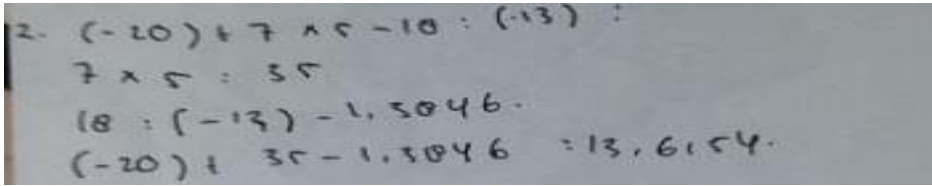 2. (-20) + 7 x 5 - 18 : (-13) :
7 x 5 : 35
18 : (-13) - 1,3846.
(-20) + 35 - 1,3846 : 13,6154.